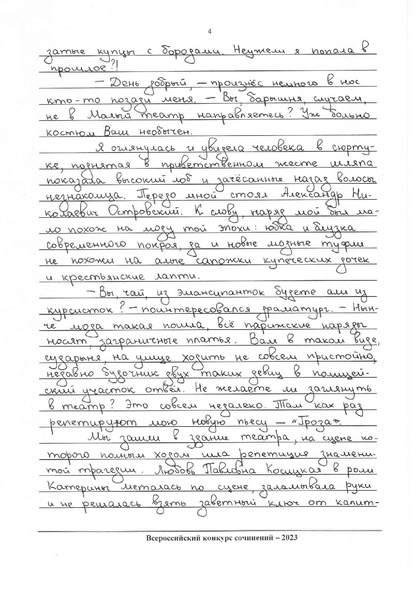 4
затые купцы с бородами. Неужели я попала в
прошлое?!
— День добрый, — произнёс немного в нос
кто-то позади меня. — Вы, барышня, случаем,
не в Малый театр направляетесь? Уж больно
костюм Ваш необычен.
Я оглянулась и увидела человека в сюрту-
ке, поднятая в приветственном жесте шляпа
показала высокий лоб и зачёсанные назад волосы
незнакомца. Передо мной стоял Александр Ни-
колаевич Островский. К слову, наряд мой был ма-
ло похож на моду той эпохи: юбка и блузка
современного покроя, да и новые модные туфли
не похожи на алые сапожки купеческих дочек
и крестьянские лапти.
— Вы, чай, из эмансипанток будете али из
курсисток? — поинтересовался драматург. — Нын-
че мода такая пошла, всё парижские наряды
носят, заграничные платья. Вам в таком виде,
сударыня, на улице ходить не совсем пристойно,
недавно будочник двух таких девиц в полицей-
ский участок отвёл. Не желаете ли заглянуть
в театр? Это совсем недалеко. Там как раз
репетируют мою новую пьесу — «Гроза».
Мы зашли в здание театра, на сцене ко-
торого полным ходом шла репетиция знамени-
той трагедии. Любовь Павловна Косицкая в роли
Катерины металась по сцене, заламывала руки
и не решалась взять заветный ключ от калит-
Всероссийский конкурс сочинений – 2023